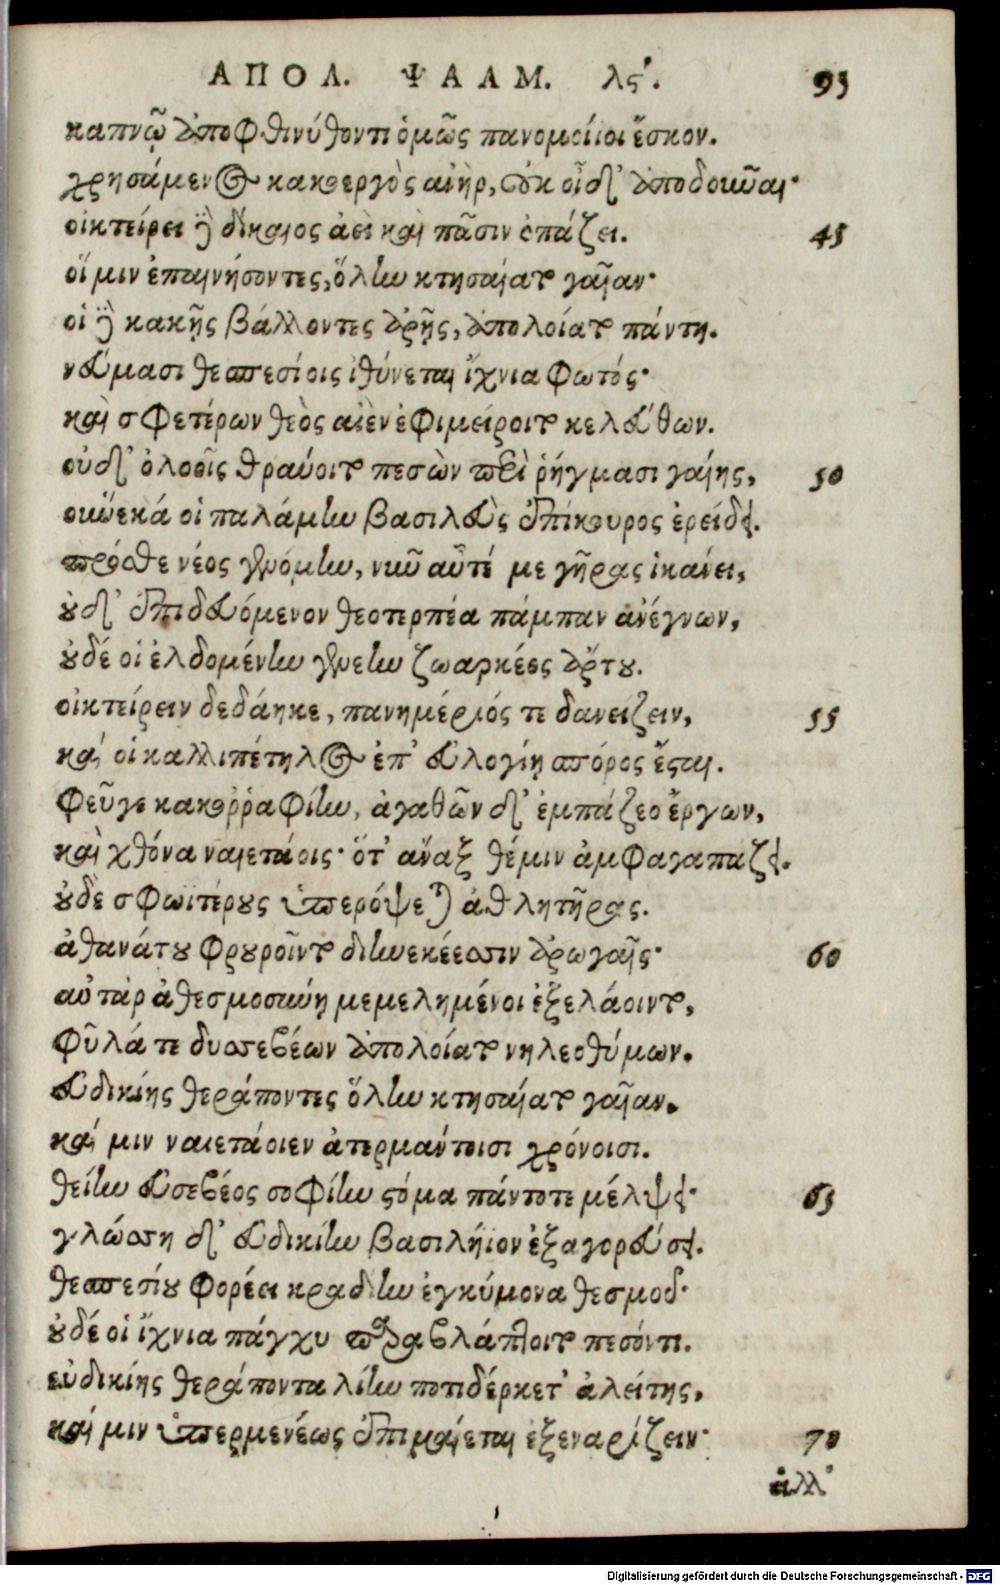 ΑΠΟΛ. ΨΑΛΜ. λϛ'. 93
καπνῷ ἀποφθινύθοντι ὁμῶς πανομοίιοι ἔσκον.
χρησάμενος κακοεργὸς ἀνὴρ, οὐκ οἶδ' ἀποδοῦναι·
οἰκτείρει δὲ δίκαιος ἀεὶ καὶ πᾶσιν ὀπάζει. 45
οἵ μιν ἐπαινήσοντες, ὅλην κτησαίατο γαῖαν·
οἱ δὲ κακῇς βάλλοντες ἀρῇς, ἀπολοίατο πάντη.
νεύμασι θεσπεσίοις ἰθύνεται ἴχνια φωτός·
καὶ σφετέρων θεὸς αἰὲν ἐφιμείροιτο κελεύθων.
οὐδ' ὀλοοῖς θραύοιτο πεσὼν περὶ ῥήγμασι γαίης, 50
οὕνεκά οἱ παλάμην βασιλεὺς ἐπίκουρος ἐρείδει.
πρόσθε νέος γενόμην, νῦν αὖτέ με γῆρας ἱκάνει,
οὐδ' ἐπιδευόμενον θεοτερπέα πάμπαν ἀνέγνων,
οὐδέ οἱ ἐλδομένην γενεὴν ζωαρκέος ἄρτου.
οἰκτείρειν δεδάηκε, πανημέριός τε δανείζειν, 55
καί οἱ καλλιπέτηλος ἐπ' εὐλογίῃ σπόρος ἔσται.
φεῦγε κακορραφίην, ἀγαθῶν δ' ἐμπάζεο ἔργων,
καὶ χθόνα ναιετάοις· ὅτ' ἄναξ θέμιν ἀμφαγαπάζει.
οὐδὲ σφωϊτέρους ὑπερόψεται ἀθλητῆρας.
ἀθανάτου φρουροῖντο διηνεκέεσσιν ἀρωγαῖς· 60
αὐτὰρ ἀθεσμοσύνῃ μεμελημένοι ἐξελάοιντο,
φῦλά τε δυσσεβέων ἀπολοίατο νηλεοθύμων.
εὐδικίης θεράποντες ὅλην κτησαίατο γαῖαν.
καί μιν ναιετάοιεν ἀτερμάντοισι χρόνοισι.
θείην εὐσεβέος σοφίην στόμα πάντοτε μέλψει· 65
γλώσσῃ δ' εὐδικίην βασιλήϊον ἐξαγορεύσει.
θεσπεσίου φορέει κραδίην ἐγκύμονα θεσμοῦ·
οὐδέ οἱ ἴχνια πάγχυ παραβλάπτοιτο πεσόντι.
εὐδικίης θεράποντα λίην ποτιδέρκετ' ἀλείτης,
καί μιν ὑπερμενέως ἐπιμαίεται ἐξεναρίζειν· 70
ἀλλ'
Digitalisierung gefördert durch die Deutsche Forschungsgemeinschaft - DFG